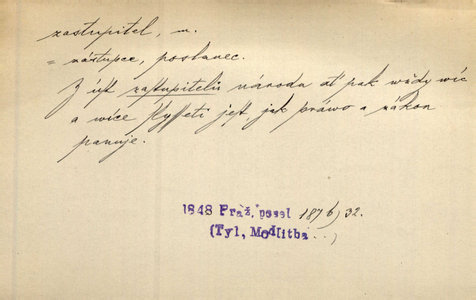 zastupitel, m.
= zástupce, poslanec.
Z úst zastupitelů národu ať pak wždy wíc
a wíce slyšeti jest, jak práwo a zákon
panuje.
1848 Praž. posel 1846, 32.
(Tyl, Modlitba...)